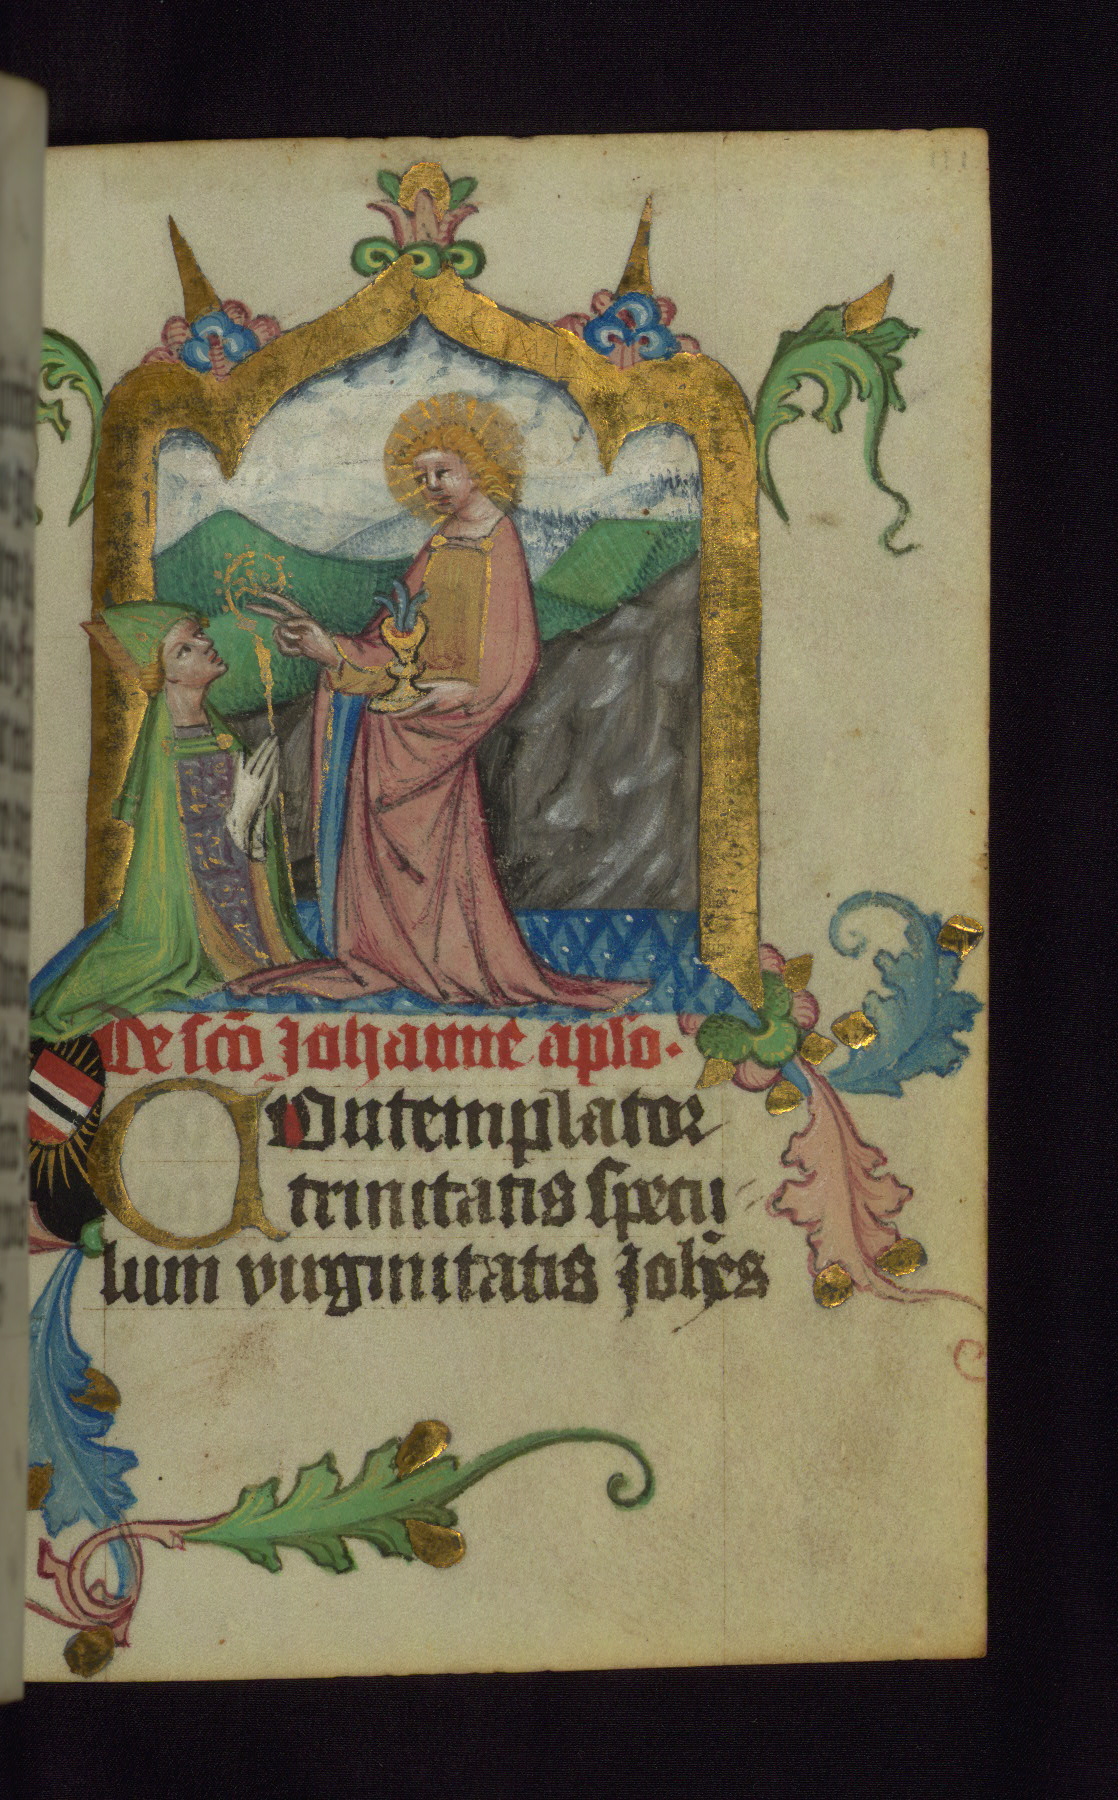 De scō Johanne aplō.
COntemplator
trinitatis specu
lum virginitatis Joh̄es